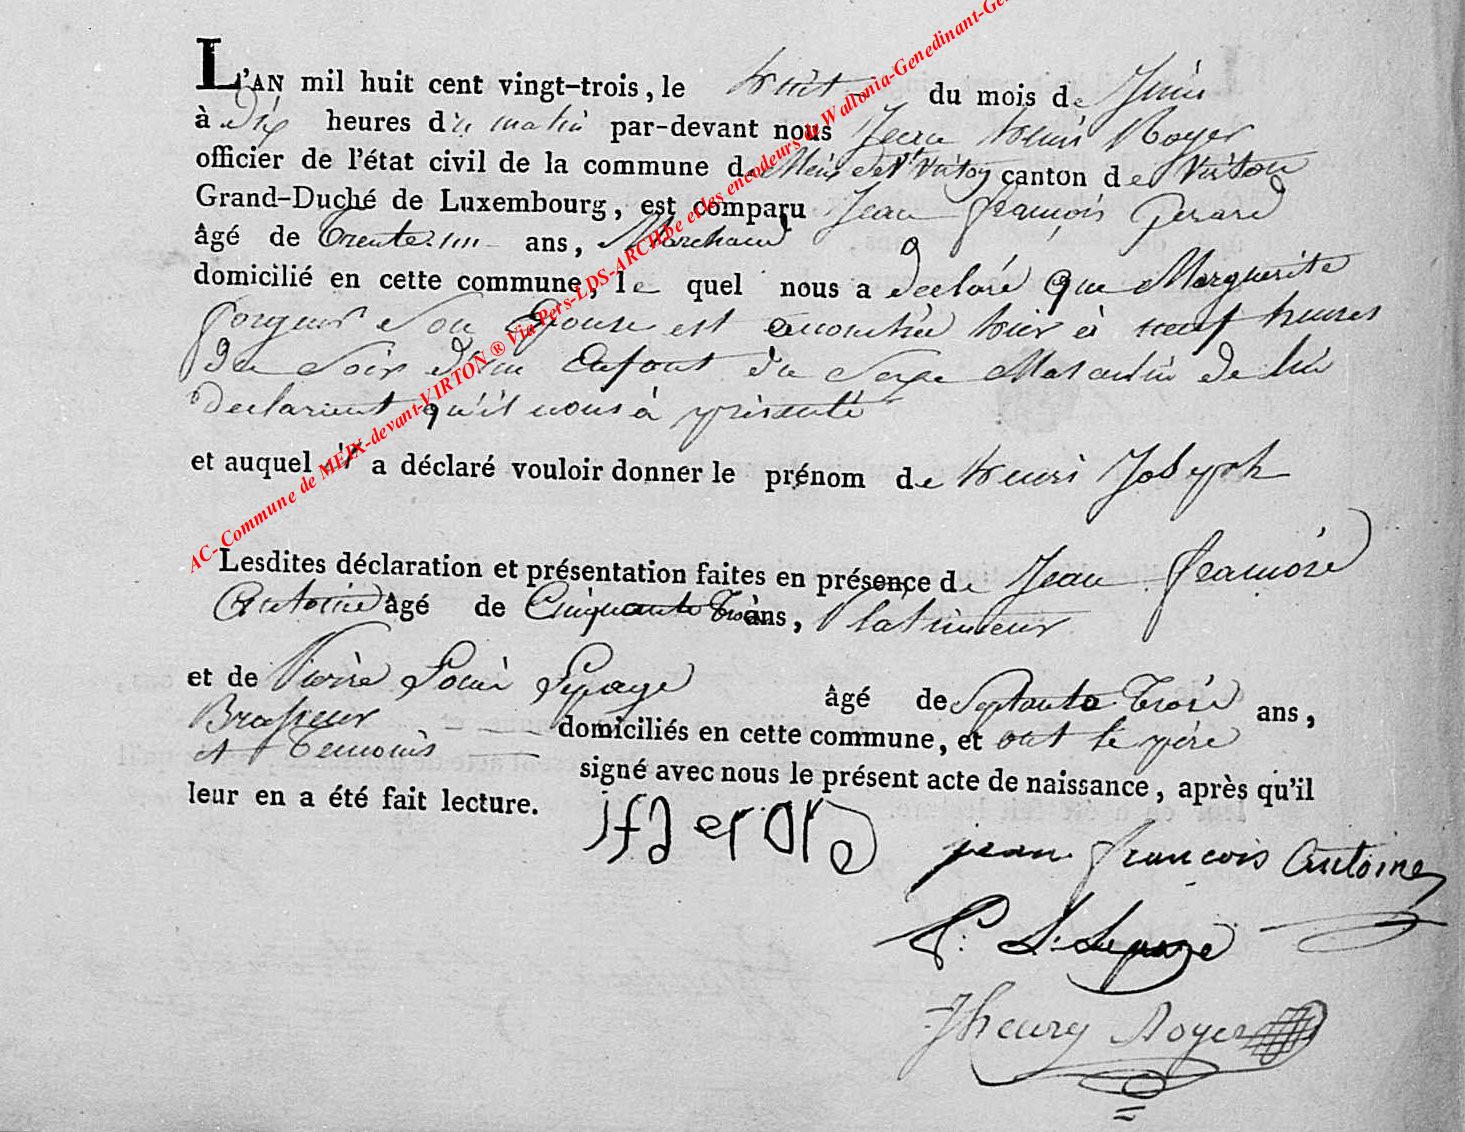 L'AN mil huit cent vingt-trois, le huit du mois de Juin
à dix heures du matin par-devant nous Jean henri Royer
officier de l'état civil de la commune de Meix dvt Virton canton de Virton
Grand-Duché de Luxembourg, est comparu Jean françois Gerard
âgé de trente ans, Marchand
domicilié en cette commune, le quel nous a declaré que Marguerite
son Epouse est accouchée hier à neuf heures
du Soir d'un Enfant du Sexe Masculin de lui
declarant qu'il nous à présenté
et auquel il a déclaré vouloir donner le prénom de henri Joseph
Lesdites déclaration et présentation faites en présence de Jean françois
Antoine âgé de Cinquante trois ans, platineur
et de Pierre Louis Lepage âgé de Septante trois ans,
Brasseur domiciliés en cette commune, et ont le père
et temoins signé avec nous le présent acte de naissance, après qu'il
leur en a été fait lecture.
jean françois Antoine
P. L. Lepage
Jhenry Royer
AC- Commune de MEIX-devant-VIRTON ® Via Pers-LDS-ARCH.be et les encodeurs de Wallonia-Genedinant-Gen